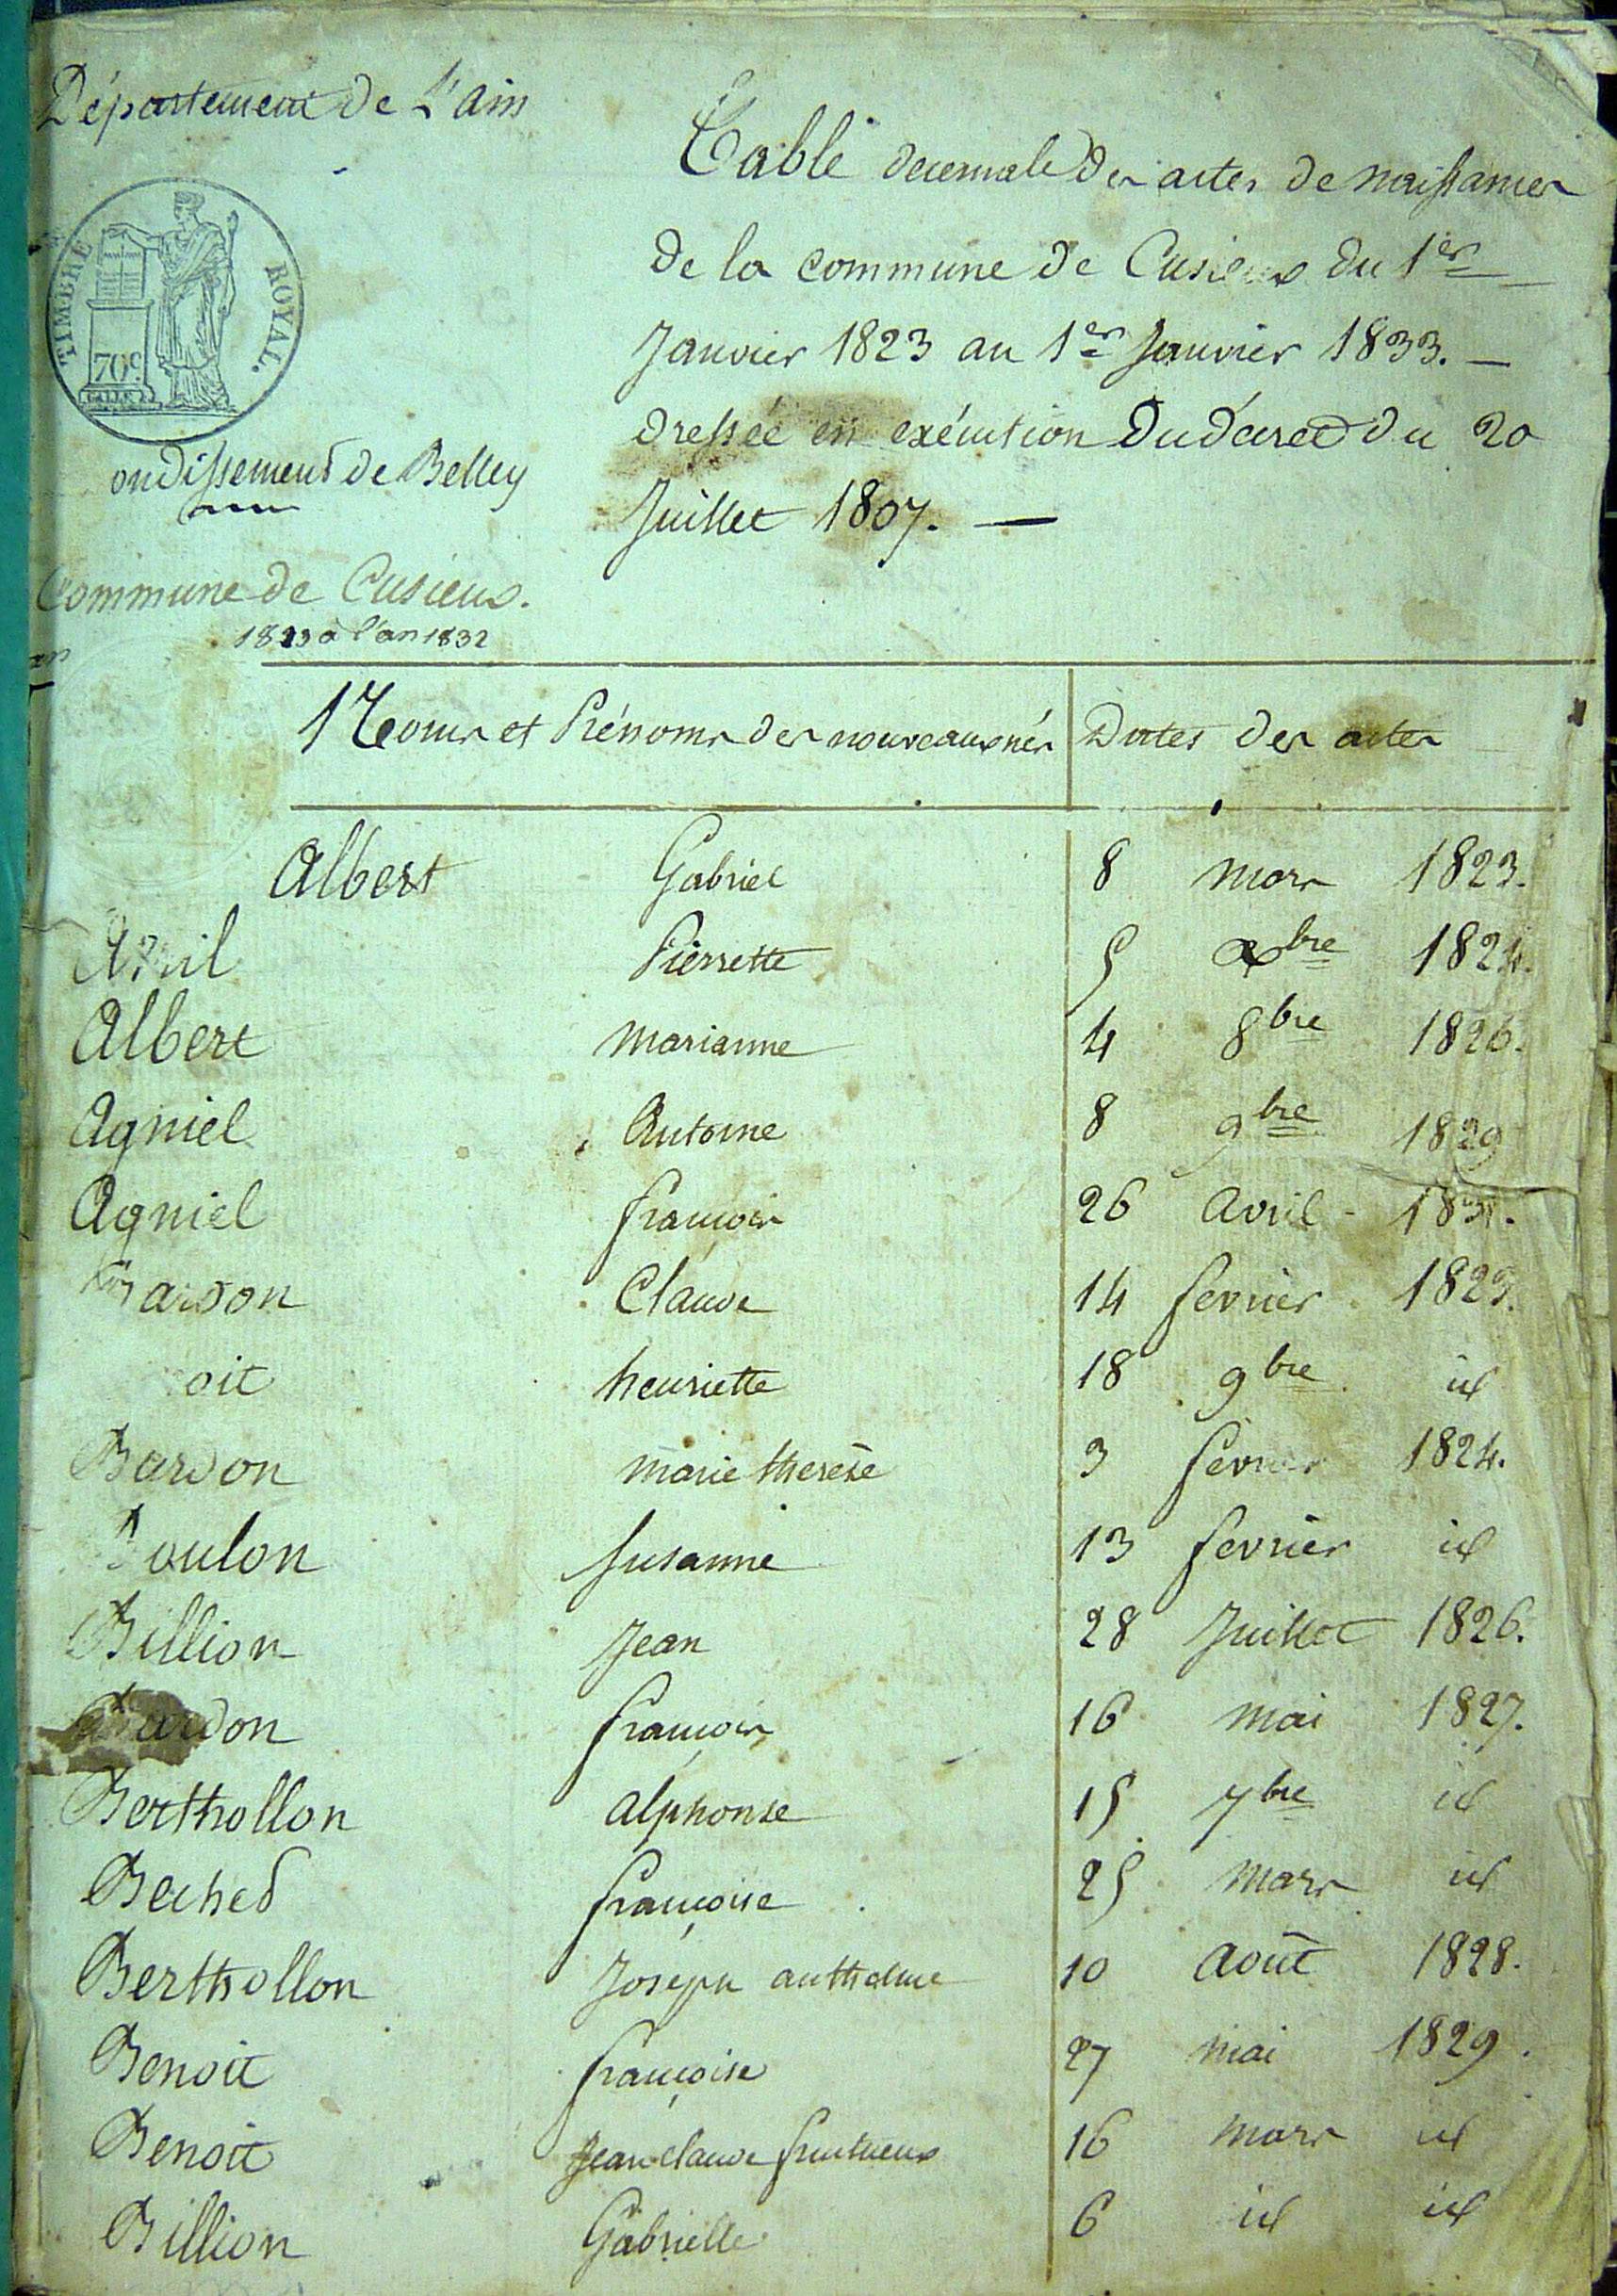 Département de L'ain
TIMBRE ROYAL.
70c.
ondissement de Belley
Commune de Cusieux.
1823 à l'an 1832
Table decennale des actes de naissances
de la commune de Cusieux du 1er
Janvier 1823 au 1er Janvier 1833. —
dressée en exécution du décret du 20
Juillet 1807. —
Noms et Prénoms des nouveaux nés Dates des actes
Albert Gabriel 8 mars 1823.
Avril Pierrette 5 Xbre 1824.
Albert marianne 4 8bre 1826.
Agniel Antoine 8 9bre 1829
Agniel françois 26 Avril 1831.
Bardon Claude 14 fevrier 1823.
oit henriette 18 9bre id
Bardon marie therèse 3 fevrier 1824.
Boulon Susanne 13 fevrier id
Billion Jean 28 Juillet 1826.
Bardon françois 16 mai 1827.
Berthollon alphonse 15 7bre id
Bechet françoise 25 mars id
Berthollon Joseph anthelme 10 Août 1828.
Benoit françoise 27 mai 1829.
Benoit Jean claude fructueux 16 mars id
Billion Gabrielle 6 id id